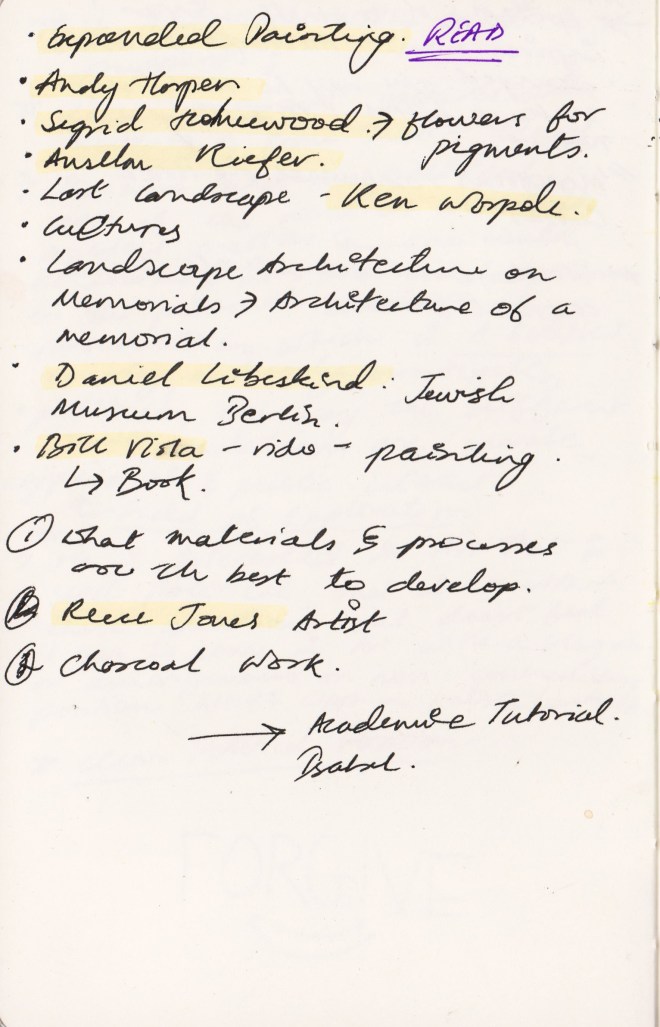 · Expanded Painting. READ
· Andy Harper
· Sigrid Holmwood. → flowers for
pigments.
· Anselm Kiefer.
· Last Landscape - Ken Worpole.
· Cultures
· Landscape Architecture on
Memorials → Architecture of a
memorial.
· Daniel Libeskind: Jewish
Museum Berlin.
· Bill Viola - vido - painting.
↳ Book.
① What materials & processes
are the best to develop.
Reece Jones Artist
Charcoal work.
→ Academic Tutorial.
Isabel.